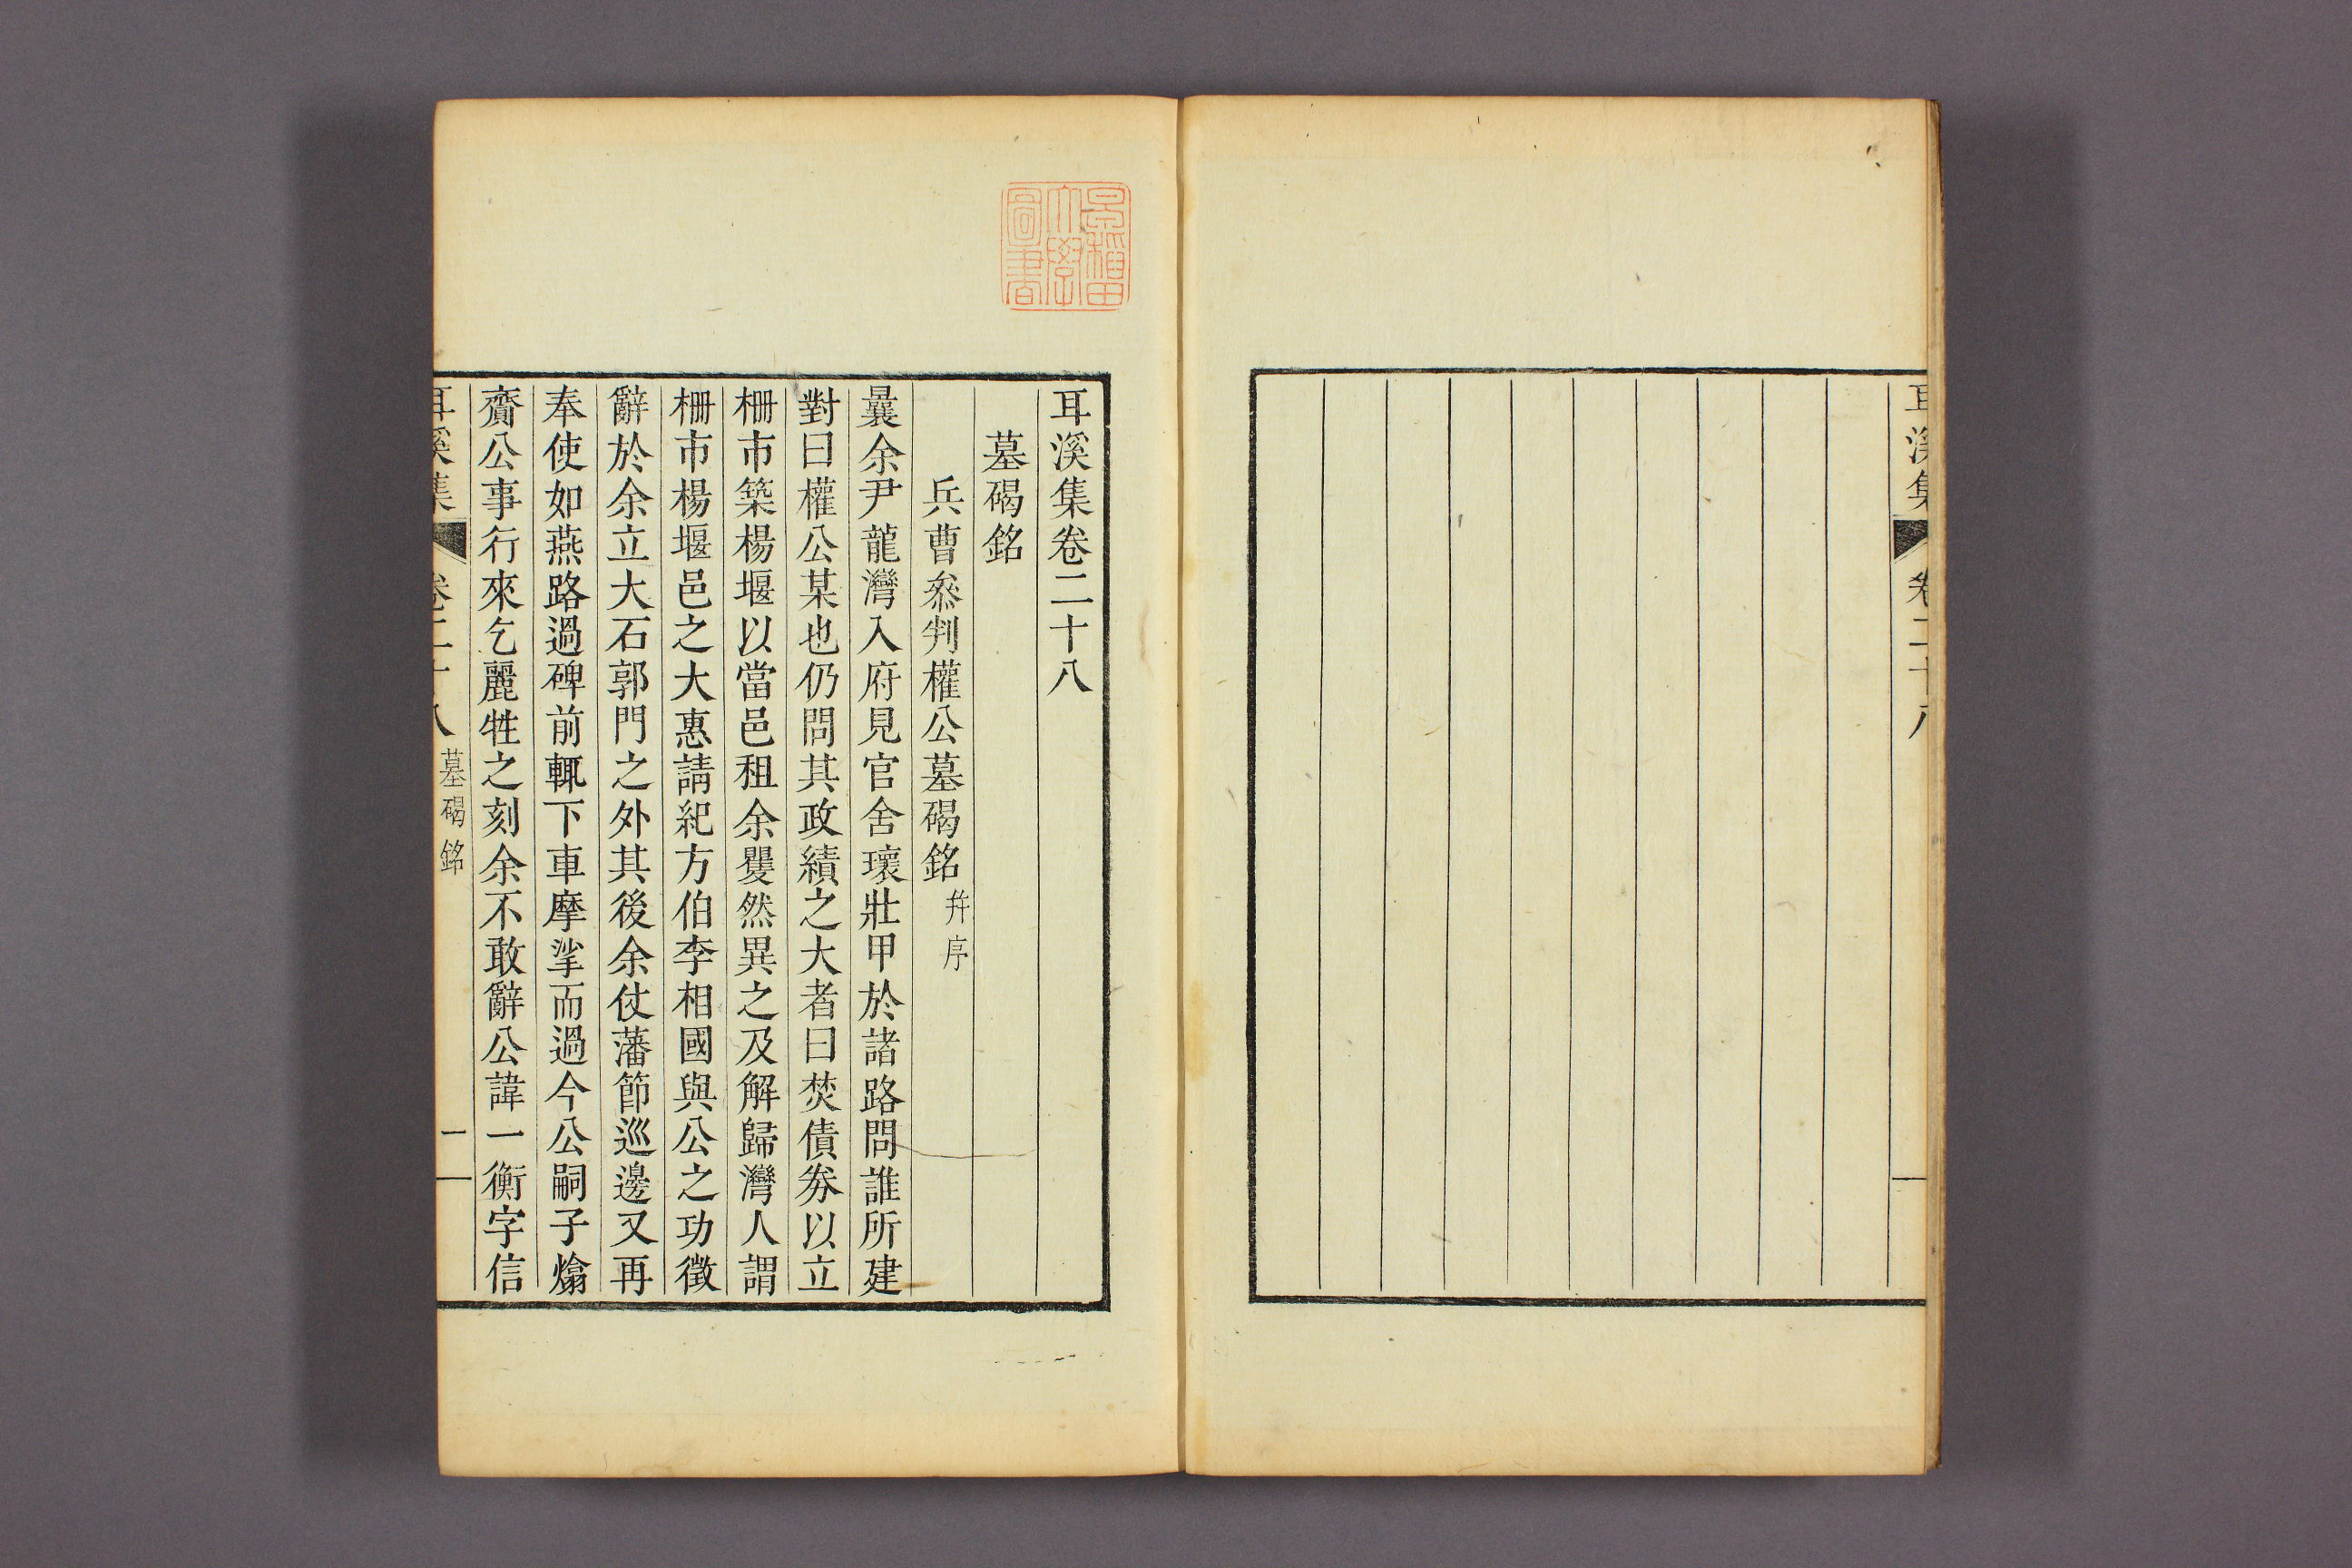 耳溪集
卷二十八
早稻田
大學
圖書
耳溪集卷二十八
墓碣銘
兵曹叅判權公墓碣銘 幷序
曩余尹龍灣入府見官舍瓌壯甲於諸路問誰所建
對曰權公某也仍問其政績之大者曰焚債券以立
柵市築楊堰以當邑租余矍然異之及解歸灣人謂
柵市楊堰邑之大惠請紀方伯李相國與公之功徵
辭於余立大石郭門之外其後余仗藩節巡邊又再
奉使如燕路過碑前輒下車摩挲而過今公嗣子熻
齎公事行來乞麗牲之刻余不敢辭公諱一衡字信
耳溪集 卷二十八 墓碣銘 一